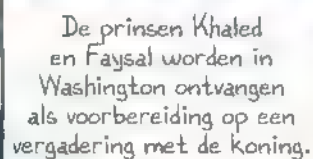 De prinsen Khaled
en Faysal worden in
Washington ontvangen
als voorbereiding op een
vergadering met de koning.